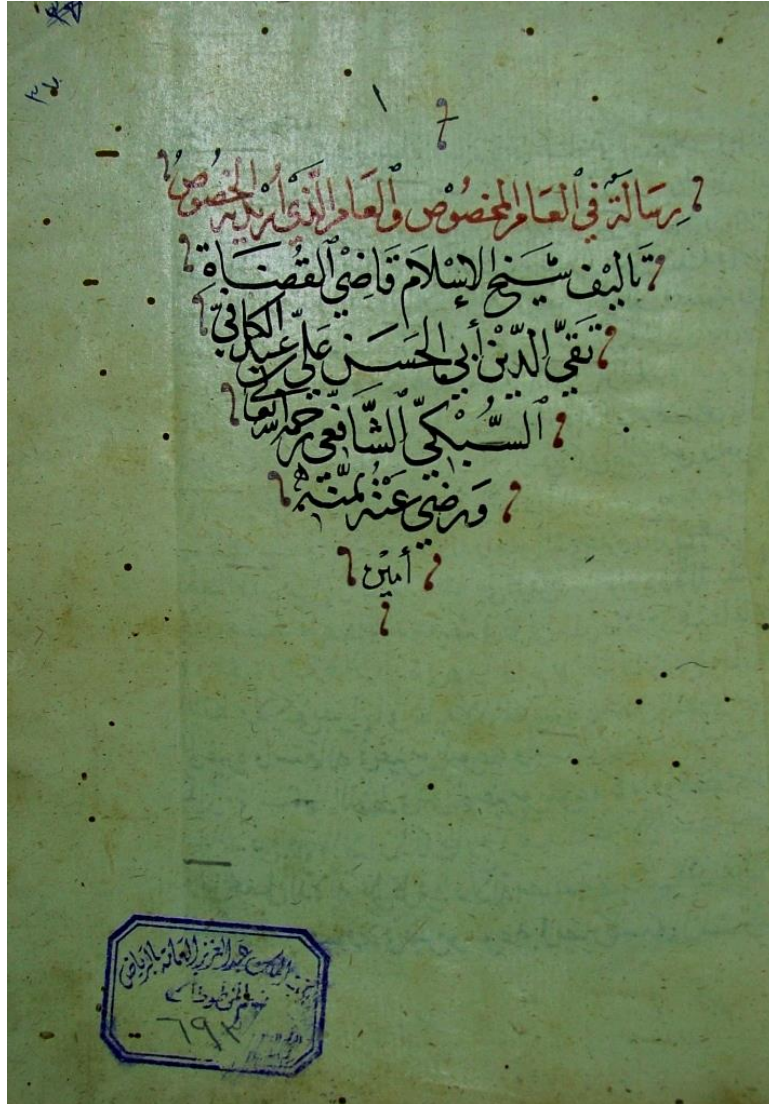 ٣٤
١
رِسَالَةٌ في العَامِ المَخصُوْصِ وَالعَامِ الَّذي أُرِيْدَ بِهِ الخُصُوْصُ
تَاليْف شَيْخ الإِسْلَام قَاضِي القُضَاةِ
تَقيِّ الدِّيْن أبي الحَسَن عَلي بن عَبد الكافي
السُّبْكيّ الشَّافِعي رَحِمَهُ الله تعالى
وَرَضيَ عَنْهُ بِمَنّهِ
أمين
عبد العزيز العامة بالرياض
قسم المخطوطات
٦٩٢